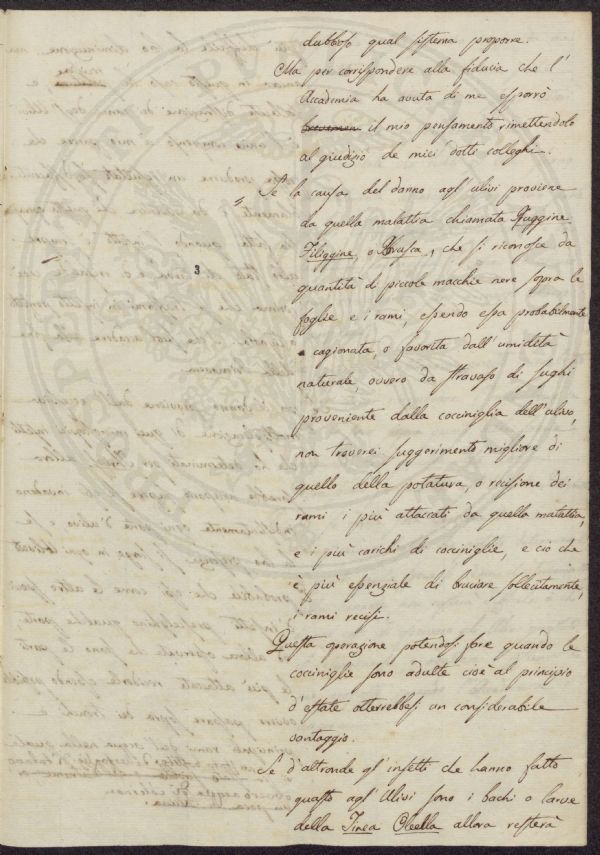 dubbioso qual sistema proporre.
Ma per corrispondere alla fiducia che l'
Accademia ha avuta di me esporrò
brevemen il mio pensamento rimettendolo
al giudizio de miei dotti colleghi.
Se la causa del danno agl' ulivi proviene
da quella malattia chiamata Ruggine
Filiggine, o Brusca, che si riconosce da
quantità di piccole macchie nere sopra le
foglie e i rami, essendo essa probabilmente
cagionata, o favorita dall' umidità
naturale, ovvero da stravaso di sughi
proveniente dalla cocciniglia dell' ulivo,
non troverei suggerimento migliore di
quello della potatura, o recisione dei
rami i più attaccati da quella malattia,
e i più carichi di cocciniglie, e ciò che
è più essenziale di bruciare sollecitamente,
i rami recisi.
Questa operazione potendosi fare quando le
cocciniglie sono adulte cioè al principio
d'estate otterrebbesi un considerabile
vantaggio.
Se d'altronde gl' insetti che hanno fatto
guasto agl' Ulivi sono i bachi o larve
della Tinea Oleella allora resterà
3